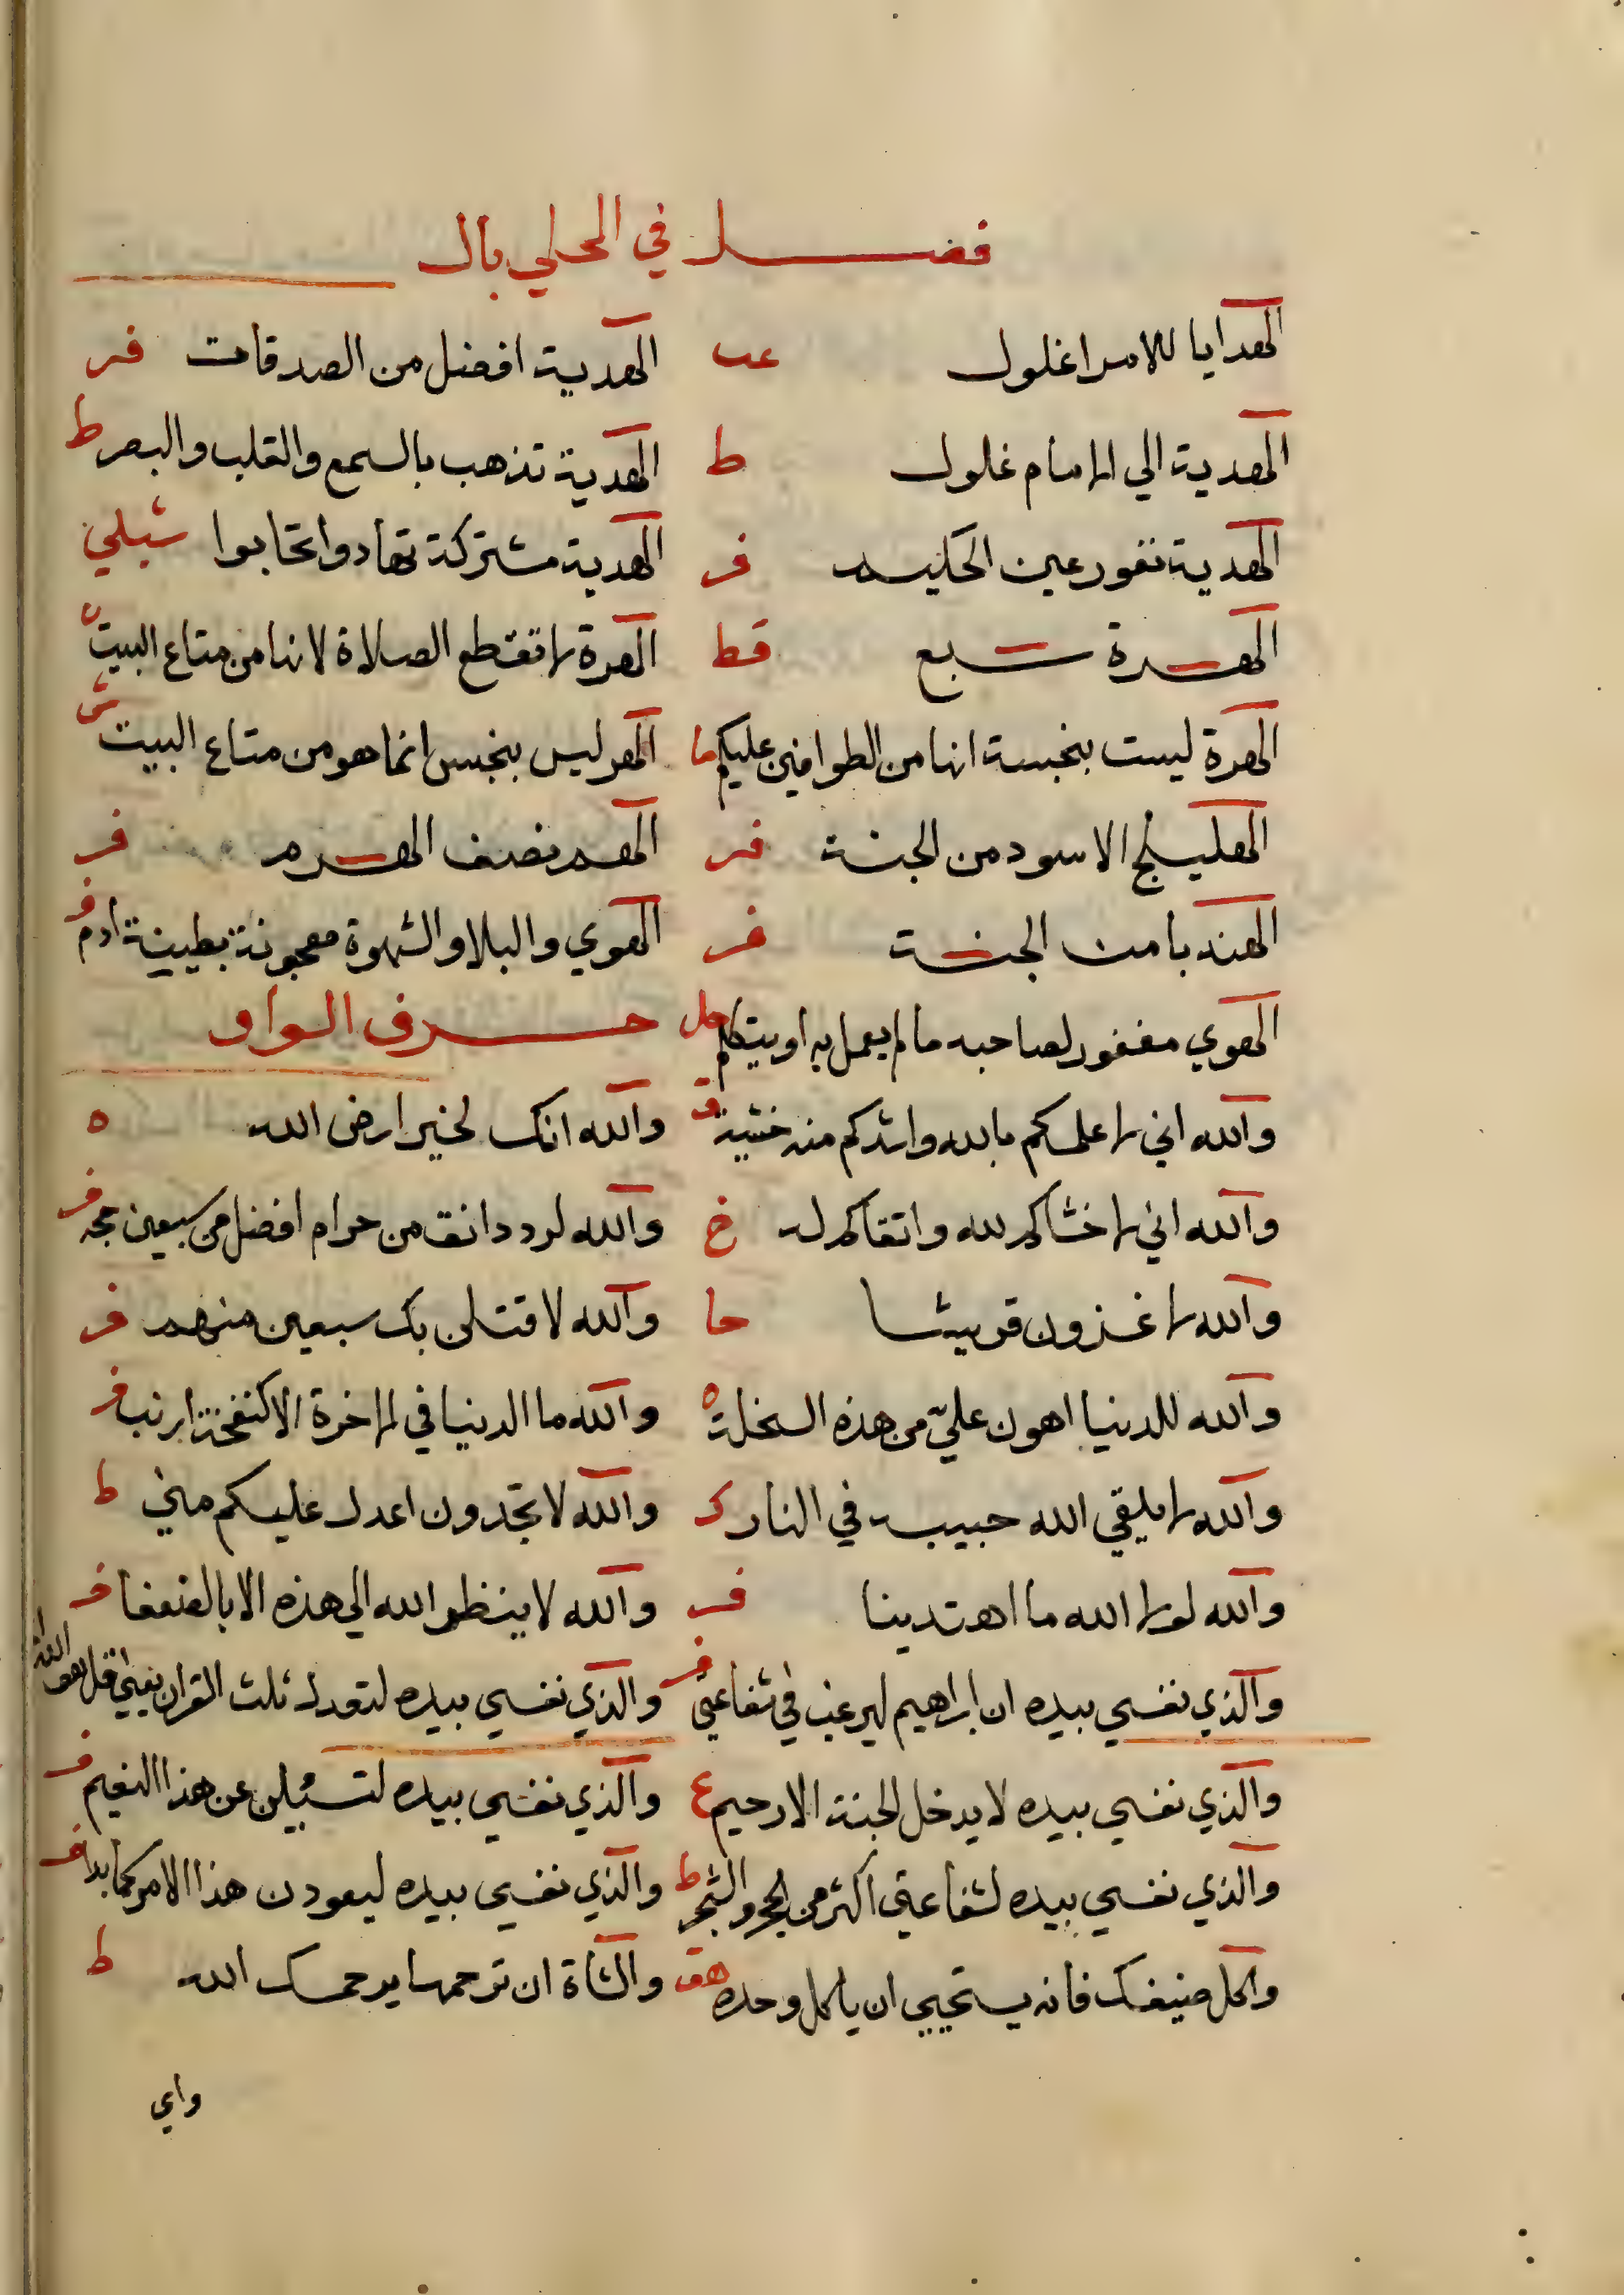 فصل في المحلي بال
الهدايا للامرا غلول عب الهدية افضل من الصدقات فر
الهدية الي الامام غلول ط الهدية تذهب بالسمع والقلب والبصر ط
الهدية تعور عين الحكيم فر الهدية مشتركة تهادوا تحابوا شبلي
الهرة سبع قط الهرة لا تقطع الصلاة لانها من متاع البيت ه
الهرة ليست بنجسة انها من الطوافين عليكم ما الهر ليس بنجس انما هو من متاع البيت ش
الهليلج الاسود من الجنة فر الهم نصف الهرم فر
الهندبا من الجنة فر الهوي والبلا والشهوة معجونة بطينة ادم فر
الهوي مغفور لصاحبه ما لم يعمل به او يتكلم حل حرف الواو
والله اني لاعلمكم بالله واشدكم منه خشية ق والله انك لخير ارض الله ه
والله اني لاخشاكم لله واتقاكم له خ والله لرد دانق من حرام افضل من سبعين حجه فر
والله لاغزون قريشا حا والله لاقتلن بك سبعين منهم فر
والله للدنيا اهون علي من هذه السخلة ه والله ما الدنيا في الاخرة الا كنفخة ارنب فر
والله لا يلقي الله حبيبه في النار ك والله لا تجدون اعدل عليكم مني ط
والله لولا الله ما اهتدينا فر والله لا ينظر الله الي هذه الا بالضعفا فر
والذي نفسي بيده ان ابراهيم ليرغب في شفاعتي فر والذي نفسي بيده لتعدل ثلث القران يعني قل هو الله
والذي نفسي بيده لا يدخل الجنة الا رحيم ع والذي نفسي بيده لتسئلن عن هذا النعيم فر
والذي نفسي بيده لشفاعتي اكثر من الحجر والشجر ط والذي نفسي بيده ليعودن هذا الامر كما بدا فر
واكل ضيفك فانه يستحيي ان ياكل وحده هق والشاة ان ترحمها يرحمك الله ط
واي